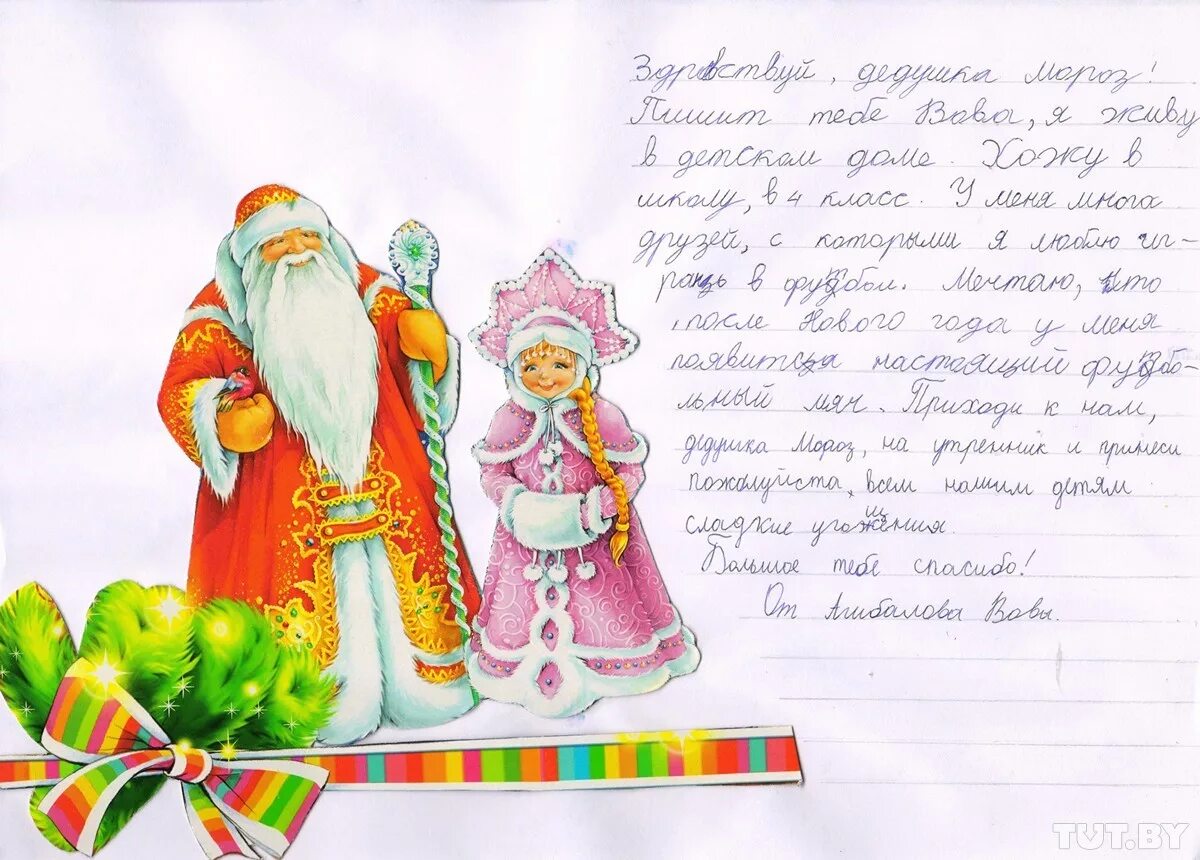 Здравствуй, дедушка Мороз!
Пишит тебе Вова, я живу
в детском доме. Хожу в
школу, в 4 класс. У меня многа
друзей, с которыми я люблю иг-
рать в футбол. Мечтаю, что
после Нового года у меня
появится настоящий футбо-
льный мяч. Приходи к нам,
дедушка Мороз, на утренник и принеси
пожалуйста, всем нашим детям
сладкие угощения.
Большое тебе спасибо!
От Агибалова Вовы.
TUT.BY